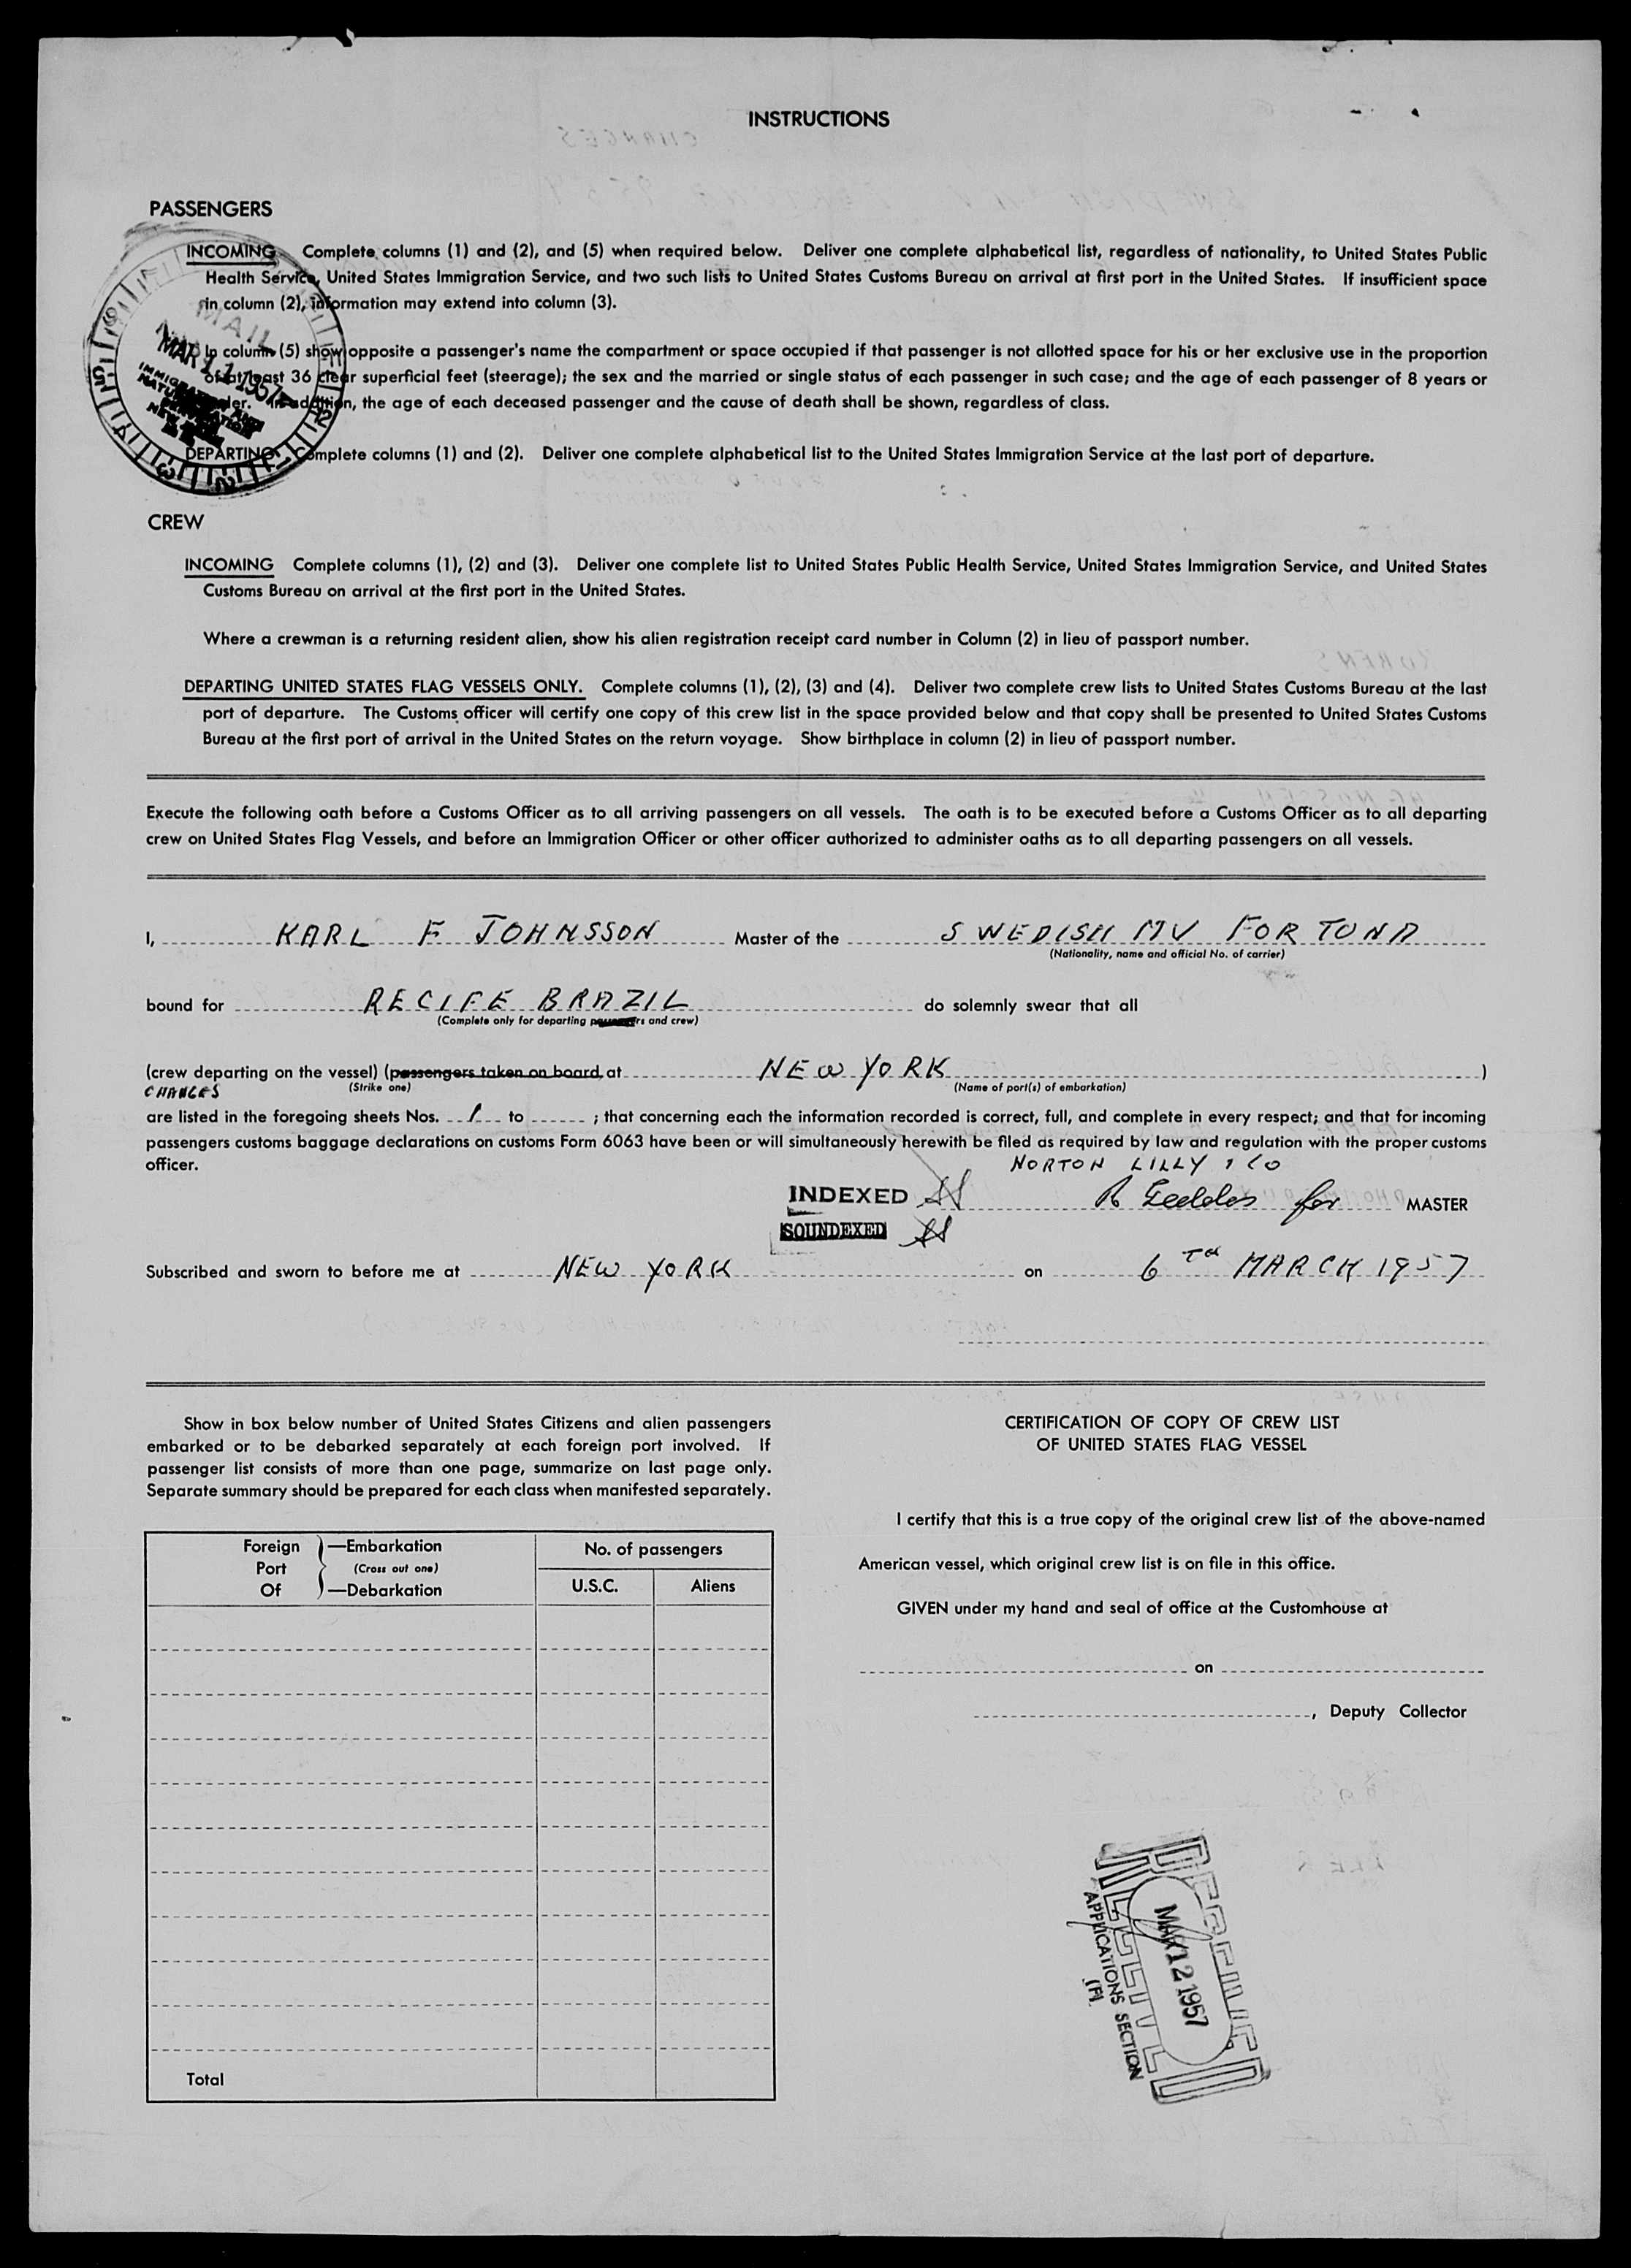 INSTRUCTIONS
PASSENGERS
INCOMING Complete columns (1) and (2), and (5) when required below. Deliver one complete alphabetical list, regardless of nationality, to United States Public
Health Service, United States Immigration Service, and two such lists to United States Customs Bureau on arrival at first port in the United States. If insufficient space
in column (2), information may extend into column (3).
In column (5) show opposite a passenger's name the compartment or space occupied if that passenger is not allotted space for his or her exclusive use in the proportion
of at least 36 clear superficial feet (steerage); the sex and the married or single status of each passenger in such case; and the age of each passenger of 8 years or
In addition, the age of each deceased passenger and the cause of death shall be shown, regardless of class.
MAIL
MAR 11 1957
DEPARTING Complete columns (1) and (2). Deliver one complete alphabetical list to the United States Immigration Service at the last port of departure.
CREW
INCOMING Complete columns (1), (2) and (3). Deliver one complete list to United States Public Health Service, United States Immigration Service, and United States
Customs Bureau on arrival at the first port in the United States.
Where a crewman is a returning resident alien, show his alien registration receipt card number in Column (2) in lieu of passport number.
DEPARTING UNITED STATES FLAG VESSELS ONLY. Complete columns (1), (2), (3) and (4). Deliver two complete crew lists to United States Customs Bureau at the last
port of departure. The Customs officer will certify one copy of this crew list in the space provided below and that copy shall be presented to United States Customs
Bureau at the first port of arrival in the United States on the return voyage. Show birthplace in column (2) in lieu of passport number.
Execute the following oath before a Customs Officer as to all arriving passengers on all vessels. The oath is to be executed before a Customs Officer as to all departing
crew on United States Flag Vessels, and before an Immigration Officer or other officer authorized to administer oaths as to all departing passengers on all vessels.
I, KARL F JOHNSSON Master of the SWEDISH MV FORTUNA
(Nationality, name and official No. of carrier)
bound for RECIFE BRAZIL do solemnly swear that all
(Complete only for departing passengers and crew)
(crew departing on the vessel) (passengers taken on board at NEW YORK )
CHANGES (Strike one) (Name of port(s) of embarkation)
are listed in the foregoing sheets Nos. 1 to ; that concerning each the information recorded is correct, full, and complete in every respect; and that for incoming
passengers customs baggage declarations on customs Form 6063 have been or will simultaneously herewith be filed as required by law and regulation with the proper customs
officer.
NORTON LILLY & CO
INDEXED R Geddes for MASTER
SOUNDEXED
Subscribed and sworn to before me at NEW YORK on 6TH MARCH 1957
Show in box below number of United States Citizens and alien passengers
embarked or to be debarked separately at each foreign port involved. If
passenger list consists of more than one page, summarize on last page only.
Separate summary should be prepared for each class when manifested separately.
Foreign Port Of —Embarkation (Cross out one) —Debarkation
No. of passengers
U.S.C. Aliens
Total
CERTIFICATION OF COPY OF CREW LIST
OF UNITED STATES FLAG VESSEL
I certify that this is a true copy of the original crew list of the above-named
American vessel, which original crew list is on file in this office.
GIVEN under my hand and seal of office at the Customhouse at
on
, Deputy Collector
RECEIVED
MAR 12 1957
APPLICATIONS SECTION